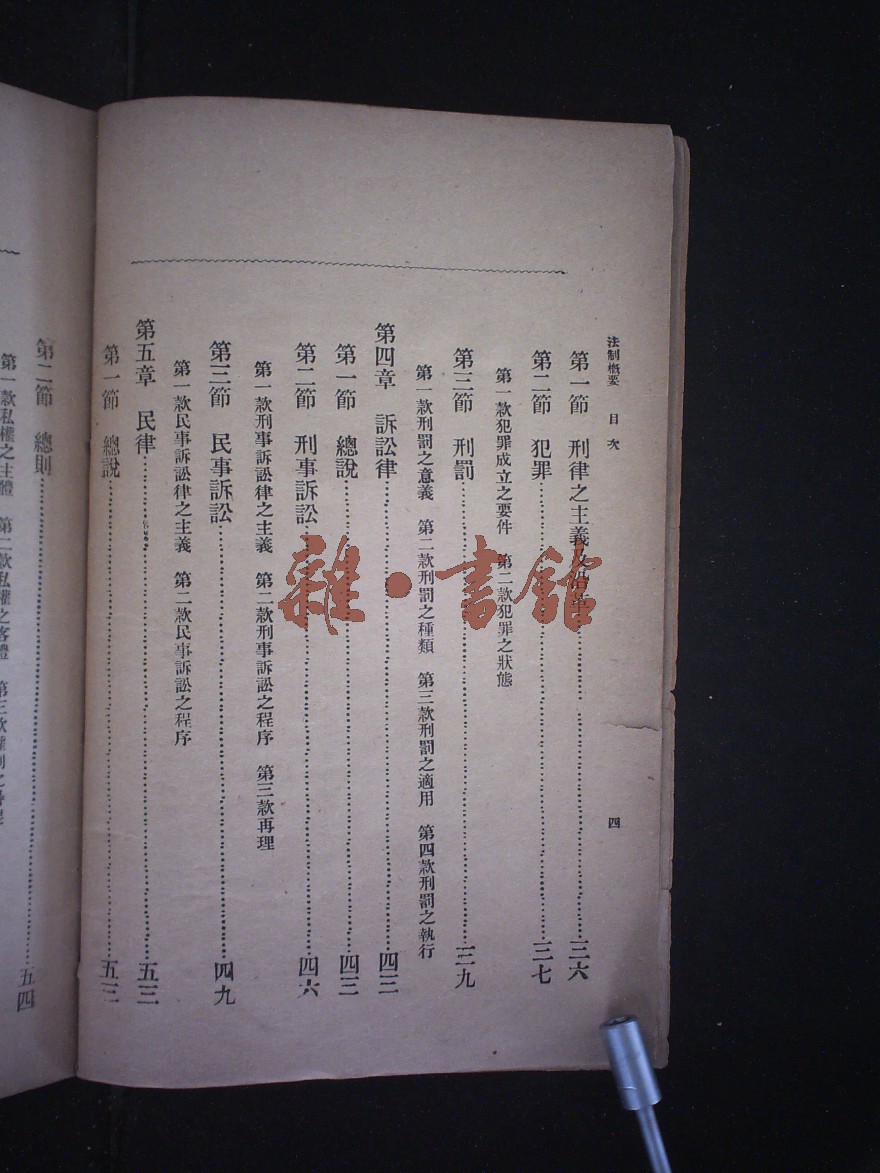 法制概要 目次 四
第一節 刑律之主義及沿革 三六
第二節 犯罪 三七
第一款犯罪成立之要件 第二款犯罪之狀態
第三節 刑罰 三九
第一款刑罰之意義 第二款刑罰之種類 第三款刑罰之適用 第四款刑罰之執行
第四章 訴訟律 四三
第一節 總說 四三
第二節 刑事訴訟 四六
第一款刑事訴訟律之主義 第二款刑事訴訟之程序 第三款再理
第三節 民事訴訟 四九
第一款民事訴訟律之主義 第二款民事訴訟之程序
第五章 民律 五三
第一節 總說 五三
第二節 總則 五四
第一款私權之主體 第二款私權之客體 第三款
雜·書館